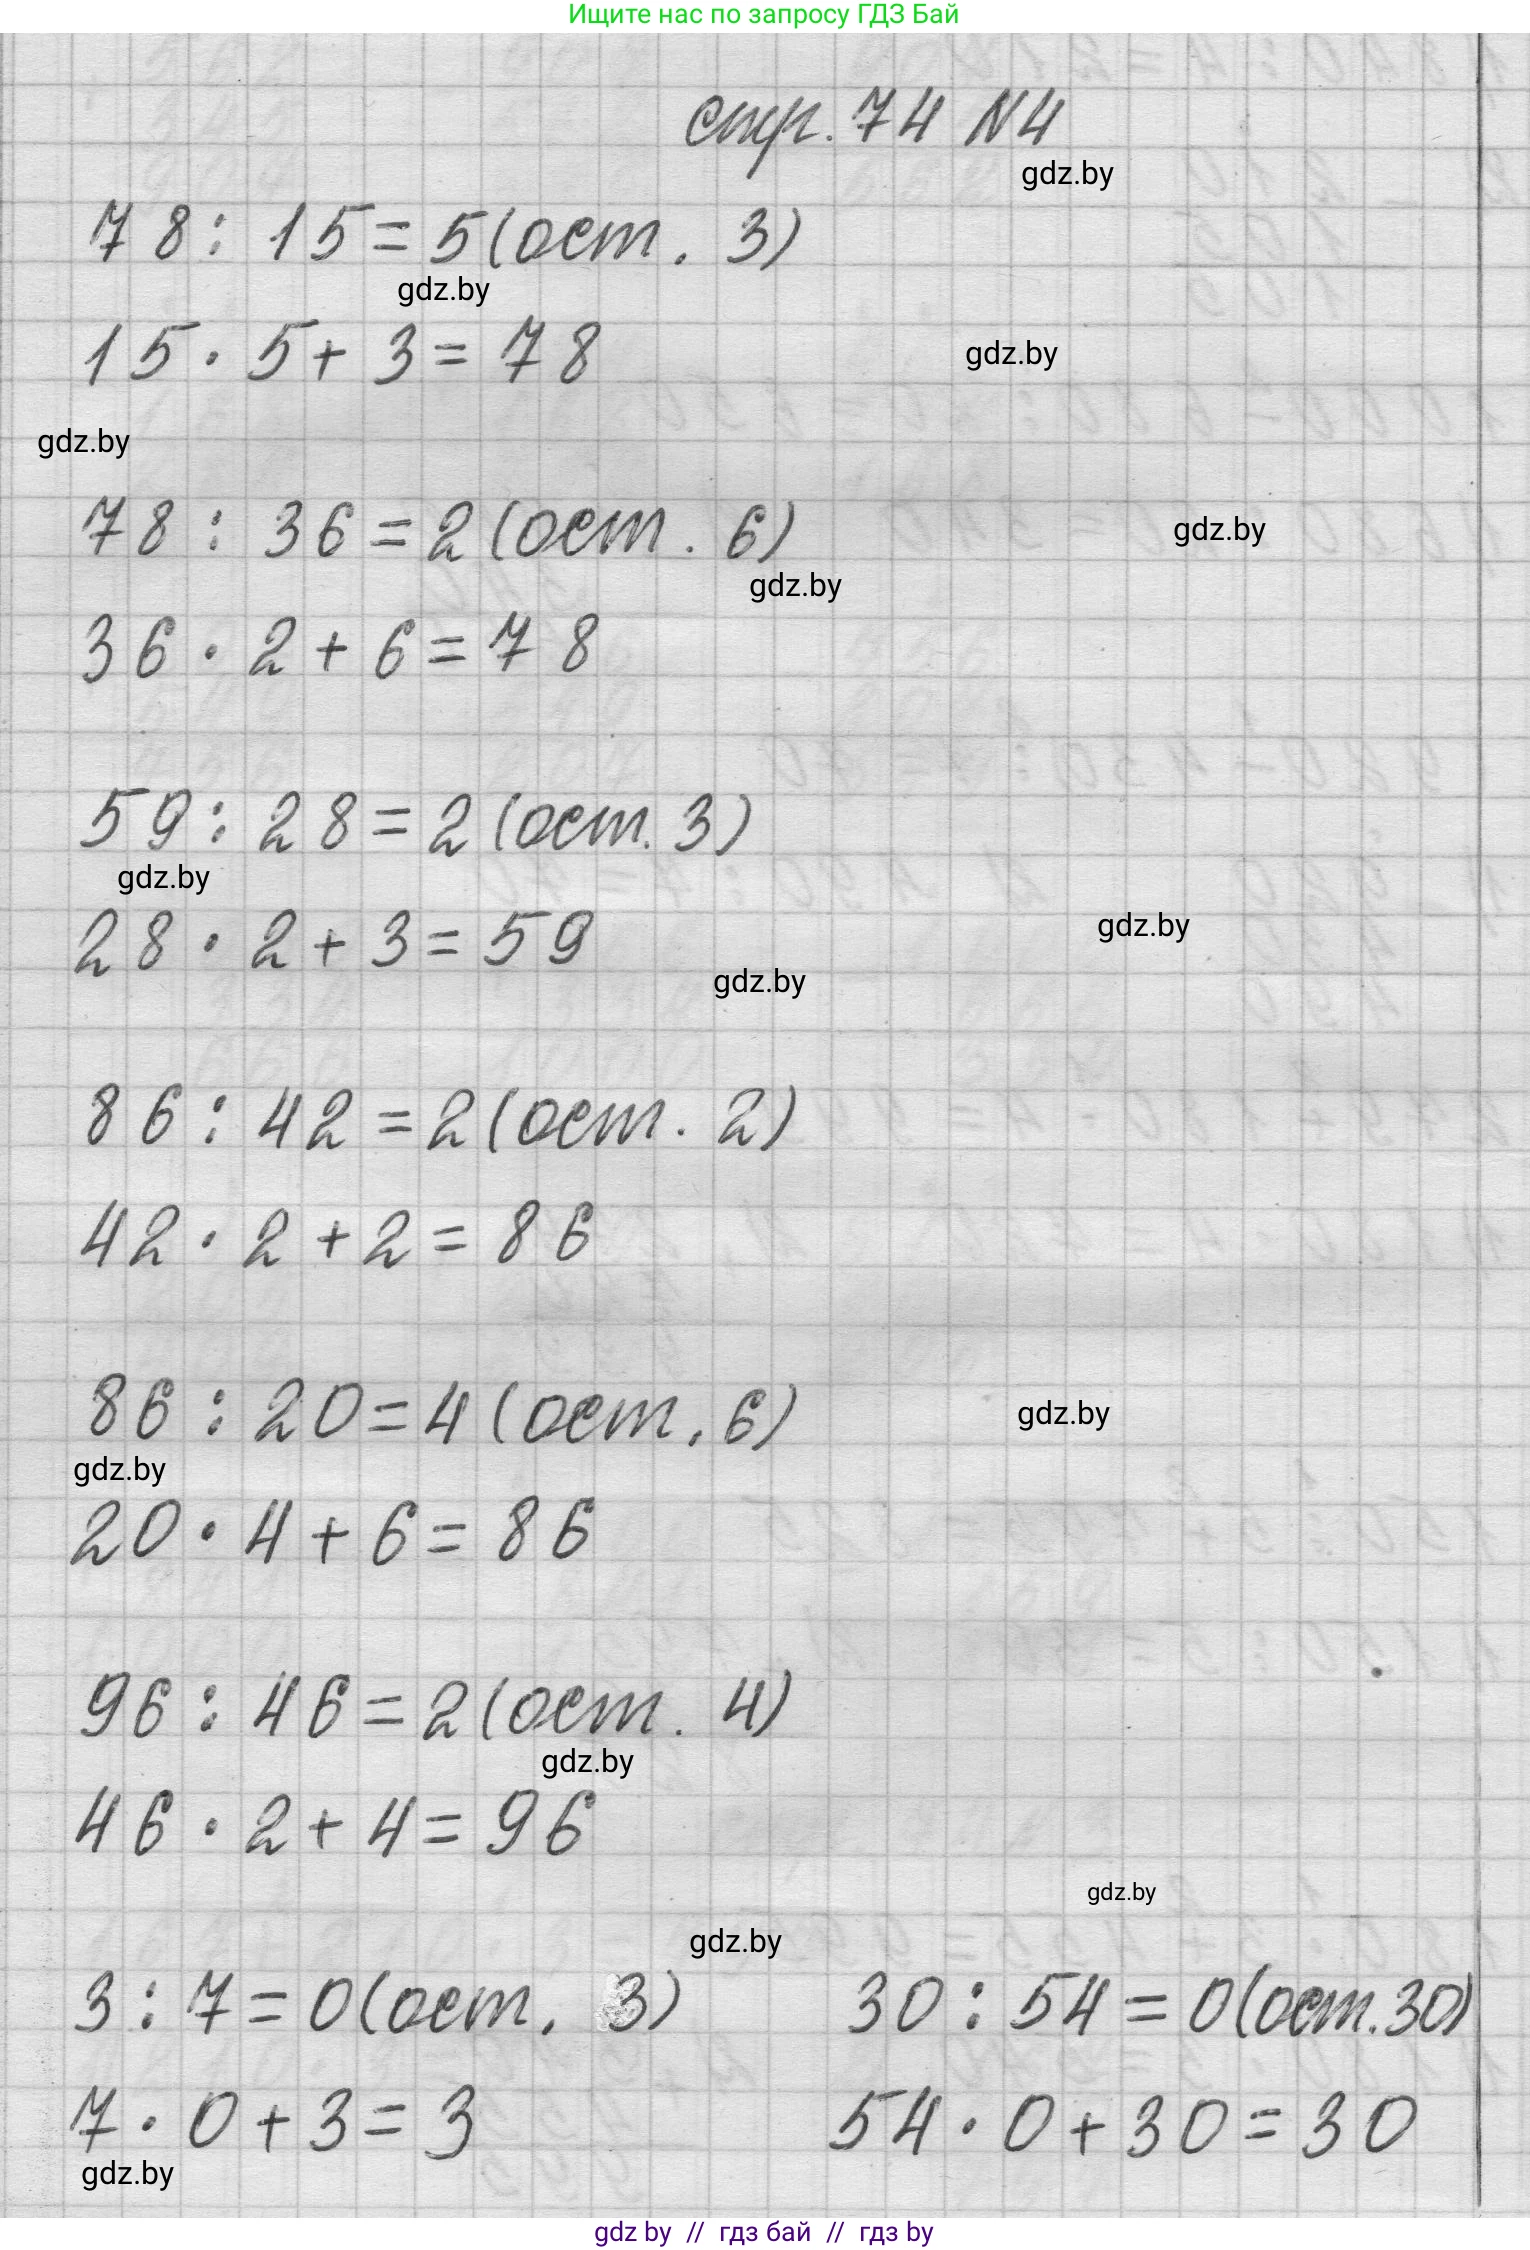 Ищите нас по запросу ГДЗ Бай
стр. 74 N4
gdz.by
78 : 15 = 5 (ост. 3)
gdz.by
15 · 5 + 3 = 78
gdz.by
gdz.by
78 : 36 = 2 (ост. 6)
gdz.by
gdz.by
36 · 2 + 6 = 78
59 : 28 = 2 (ост. 3)
gdz.by
28 · 2 + 3 = 59
gdz.by
gdz.by
86 : 42 = 2 (ост. 2)
42 · 2 + 2 = 86
86 : 20 = 4 (ост. 6)
gdz.by
gdz.by
20 · 4 + 6 = 86
96 : 46 = 2 (ост. 4)
gdz.by
46 · 2 + 4 = 96
gdz.by
gdz.by
3 : 7 = 0 (ост. 3)
30 : 54 = 0 (ост. 30)
7 · 0 + 3 = 3
54 · 0 + 30 = 30
gdz.by
gdz by // гдз бай // гдз by